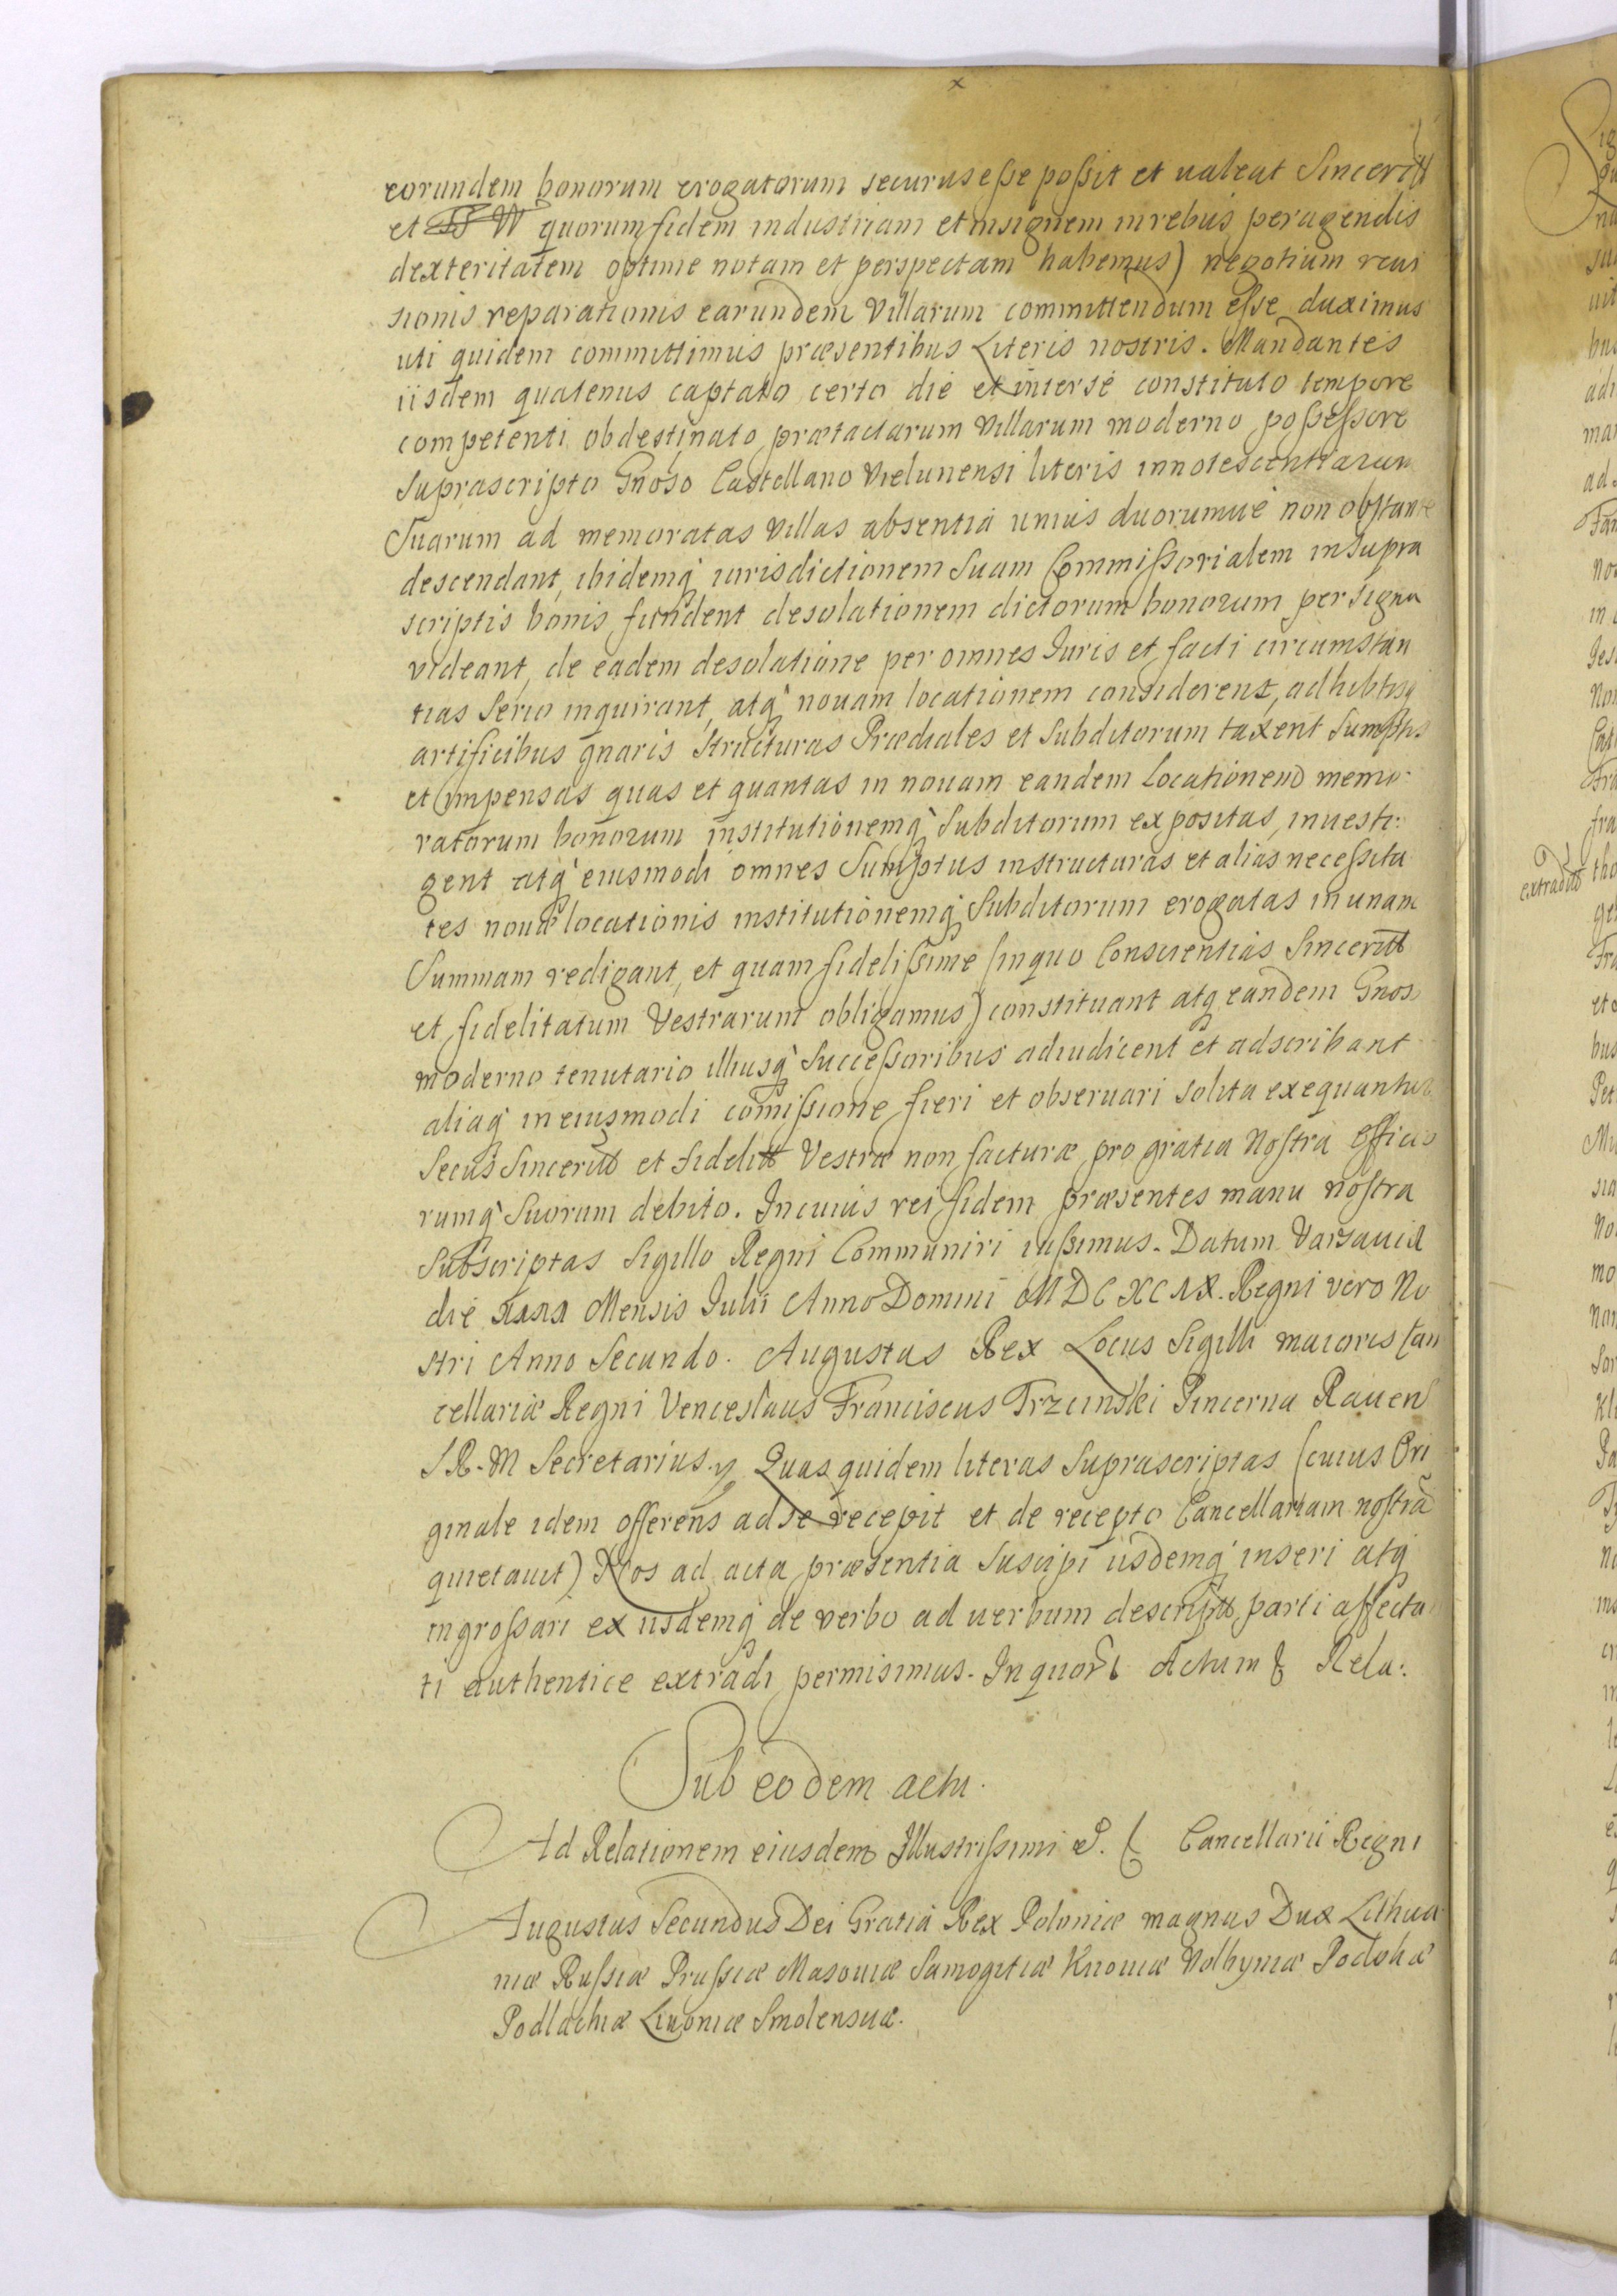 eorundem bonorum erogatorum securus esse possit et ualeat Sinceritt
et W quorum fidem industriam et insignem in rebus peragendis
dexteritatem optime notam et perspectam habemus) negotium reui
sionis reparationis earundem Villarum committendum esse duximus
uti quidem committimus præsentibus Literis nostris. Mandantes
iisdem quatenus captato certo die et inter se constituto tempore
competenti ob destinato prætactarum Villarum moderno possessore
Suprascripto Gnoso Castellano Vielunensi literis innotescentiarum
Suarum ad memoratas Villas absentia unius duorumue non obstante
descendant, ibidemq iurisdictionem Suam Commissorialem in supra
scriptis bonis fundent desolationem dictorum bonorum per signa
videant, de eadem desolatione per omnes Iuris et facti circumstan
tias serio inquirant, atq nouam locationem considerent, adhibitisq
artificibus gnaris Structuras Prædiales et Subditorum taxent Sumptus
et impensas quas et quantas in nouam eandem locationem memo:
ratorum bonorum institutionemq Subditorum expositas, inuesti:
gent atq eiusmodi omnes Sumptus in structuras et alias necessita
tes nouæ locationis institutionemq Subditorum erogatas in unam
Summam redigant, et quam fidelissime (in quo Conscientias Sinceritt
et fidelitatum Vestrarum obligamus) constituant atq eandem Gnoso
moderno tenutario illiusq Successoribus adiudicent et adscribant
aliaq in eiusmodi comissione fieri et obseruari solita exequantur
Secus Sinceritt et fidelitt Vestræ non facturæ pro gratia Nostra officio
rumq Suorum debito. In cuius rei fidem præsentes manu nostra
Subscriptas Sigillo Regni Communiri iussimus. Datum Varsauiæ
die Mensis Iulii Anno Domini MDCXCIX. Regni vero No
stri Anno Secundo. Augustus Rex Locus Sigilli maioris Can
cellariæ Regni Venceslaus Franciscus Trzcinski Pincerna Rauen
S R. M Secretarius. Quas quidem literas Suprascriptas (cuius Ori
ginale idem offerens ad se recepit et de recepto Cancellariam nostrã
quietauit) Nos ad acta præsentia Suscipi iisdemq inseri atq
ingrossari ex iisdemq de verbo ad uerbum descriptt parti affecta
ti authentice extradi permisimus. In quor Actum Rela:
Sub eodem actu.
Ad Relationem eiusdem Illustrissimi Cancellarii Regni
Augustus Secundus Dei Gratia Rex Poloniæ magnus Dux Lithua
niæ Russiæ Prussiæ Masouiæ Samogitiæ Kiiouiæ Volhyniæ Podoliæ
Podlachiæ Liuoniæ Smolensciæ.
extradit